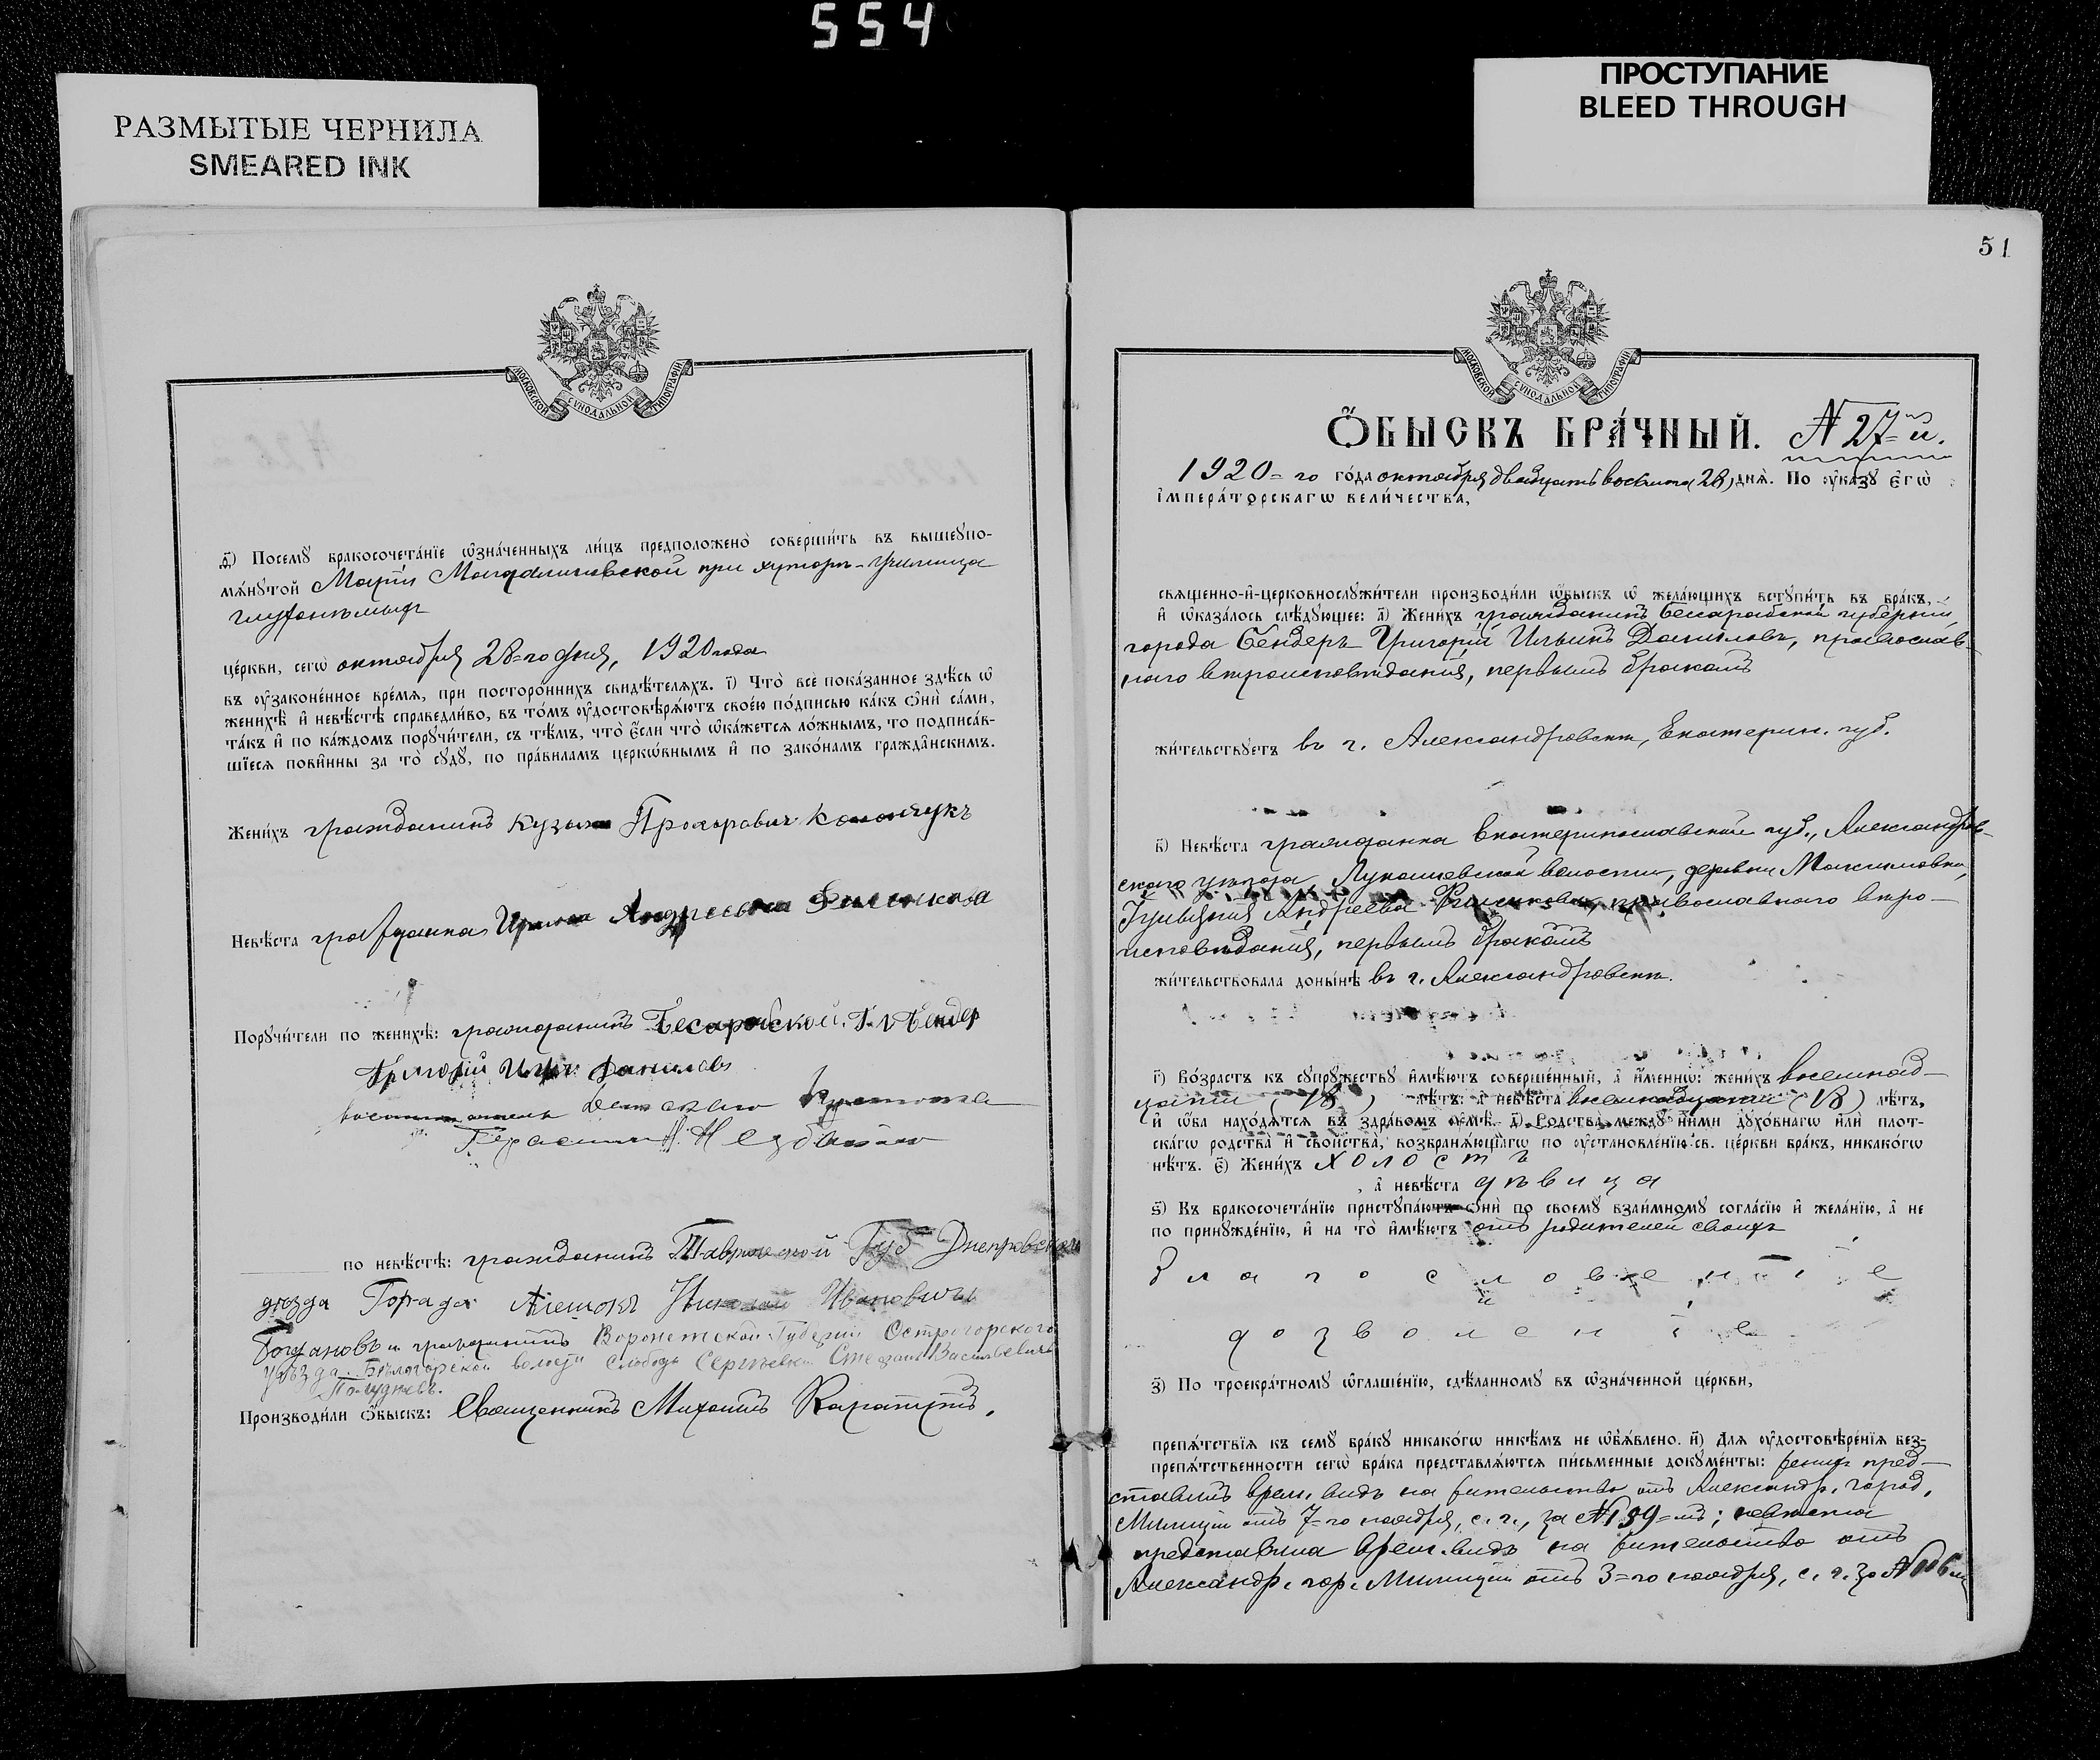 554
РАЗМЫТЫЕ ЧЕРНИЛА
SMEARED INK
ПРОСТУПАНИЕ
BLEED THROUGH
МОСКОВСКОЙ СѴНОДАЛЬНОЙ ТИПОГРАФІИ
д҃) Посемꙋ бракосочета́нїе ѡ҆зна́ченныхъ ли́цъ предположено̀ соверши́ть въ вышеꙋпо-
мѧ́нꙋтой при хуторѣ-
це́ркви, сегѡ̀ октября 28=го дня, 1920 года
въ ᲂу҆зако́не́нное вре́мѧ, при посторо́ннихъ свидѣ́телѧхъ. і҃) Что̀ всѐ пока́занное здѣ́сь ѡ҆
женихѣ̀ и҆ невѣ́стѣ справедли́во, въ то́мъ ᲂу҆достовѣрѧ́ютъ свое́ю по́дписью ка́къ ѻ҆нѝ са́ми,
та́къ и҆ по ка́ждомъ порꙋчи́тели, съ тѣ́мъ, что̀ є҆́сли что̀ ѡ҆ка́жетсѧ ло́жнымъ, то подписа́в-
шїесѧ пови́нны за то̀ сꙋдꙋ̀, по пра́виламъ церко́внымъ и҆ по зако́намъ гражда́нскимъ.
Жени́хъ гражданинъ Кузьма Прохорович
Невѣ́ста гражданка Андреевна
Порꙋчи́тели по женихѣ̀: гражданинъ Бесарабской Г. Бендер
Григорий Данилов
по невѣ́стѣ: гражданинъ Таврической Губ Днепровскаго
уезда Города Алешокъ Николай Ивановичъ
Богдановъ и гражданинъ Воронежской Губернии Острогорскаго
уѣзда Бѣлогорской волости слободы Степанъ Васильевичъ
Полуднев.
Производи́ли ѻ҆́быскъ: Священникъ Михаилъ
51
МОСКОВСКОЙ СѴНОДАЛЬНОЙ ТИПОГРАФІИ
Ѻ҆́БЫСКЪ БРА́ЧНЫЙ. № 27=й.
1920=го го́да октября двадцать восьмого (28) днѧ̀. По ᲂу҆ка́зꙋ є҆гѡ̀
і҆мпера́торскагѡ вели́чества,
свѧще́нно-и҆-церковнослꙋжи́тели производи́ли ѻ҆́быскъ ѡ҆ жела́ющихъ встꙋпи́ть въ бра́къ,
и҆ ѡ҆каза́лось слѣ́дꙋющее: а҃) Жени́хъ гражданинъ Бесарабской губерніи
города Бендеръ Григорій Ильинъ Даниловъ, православ-
наго вѣроисповѣданія, первымъ бракомъ
жи́тельствꙋетъ въ г. Александровскѣ, Екатерин. губ.
в҃) Невѣ́ста гражданка Екатеринославской губ., Александров-
скаго уѣзда, Лукашевской волости, деревни Максимовки,
Андреева православнаго вѣро-
исповѣданія, первымъ бракомъ
жи́тельствовала доны́нѣ въ г. Александровскѣ.
г҃) Во́зрастъ къ сꙋпрꙋ́жествꙋ и҆мѣ́ютъ соверше́нный, а҆ и҆́меннѡ: жени́хъ восемнад-
цати (18) лѣ́тъ: а҆ невѣ́ста восемнадцати (18) лѣ́тъ,
и҆ ѻ҆́ба нахо́дѧтсѧ въ здра́вомъ ᲂу҆мѣ̀. д҃) Родства̀ междꙋ̀ ни́ми дꙋхо́внагѡ и҆лѝ плот-
ска́гѡ родства̀ и҆ сво́йства, возбранѧ́ющагѡ по ᲂу҆становле́нїю св. це́ркви бра́къ, никако́гѡ
нѣ́тъ. є҃) Жени́хъ холостъ
, а҆ невѣ́ста дѣвица
ѕ҃) Къ бракосочета́нїю пристꙋпа́ютъ ѻ҆нѝ по своемꙋ̀ взаи́мномꙋ согла́сїю и҆ жела́нїю, а҆ не
по принꙋжде́нїю, и҆ на то̀ и҆мѣ́ютъ отъ родителей своихъ
благословеніе
и
дозволеніе
з҃) По троекра́тномꙋ ѡ҆глаше́нїю, сдѣ́ланномꙋ въ ѡ҆зна́ченной це́ркви,
препѧ́тствїѧ къ семꙋ̀ бра́кꙋ никако́гѡ никѣ́мъ не ѡ҆б̾ѧ́влено. и҃) Длѧ̀ ᲂу҆достовѣре́нїѧ без-
препѧ́тственности сегѡ̀ бра́ка представлѧ́ютсѧ пи́сьменные докꙋме́нты: жених пред-
ставилъ врем. видъ на жительство отъ Александр. город.
Милиціи отъ 7=го ноября, с. г., за № невѣста
представила врем. видъ на жительство отъ
Александр. гор. Милиціи отъ 3=го ноября, с. г. за №